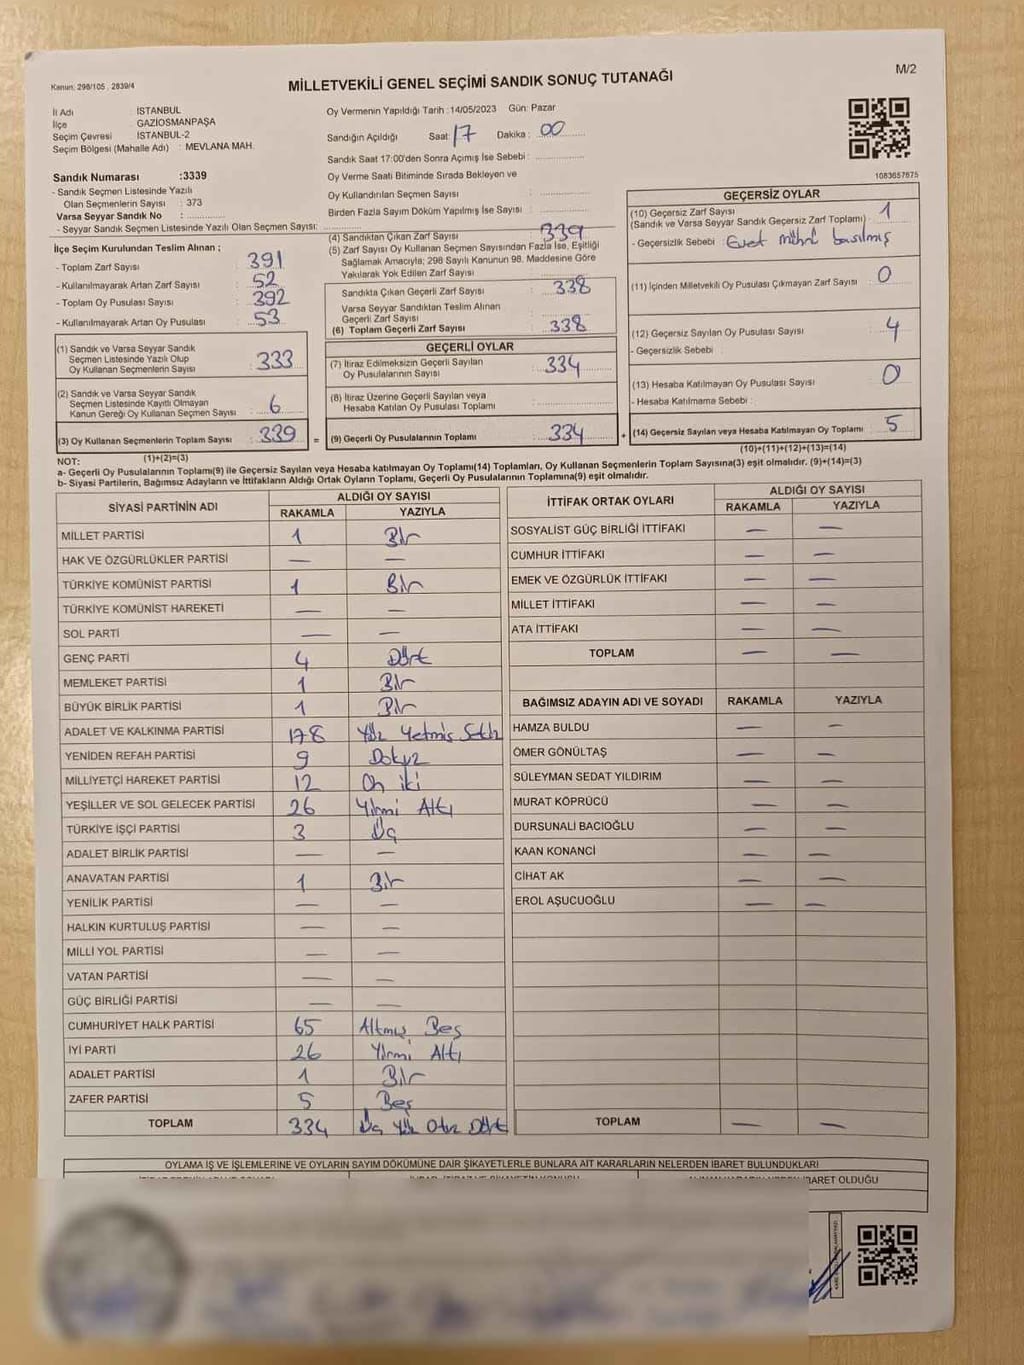 Kanun: 298/105 , 2839/4
MİLLETVEKİLİ GENEL SEÇİMİ SANDIK SONUÇ TUTANAĞI
M/2
İl Adı : İSTANBUL
İlçe : GAZİOSMANPAŞA
Seçim Çevresi : İSTANBUL-2
Seçim Bölgesi (Mahalle Adı) : MEVLANA MAH.
Oy Vermenin Yapıldığı Tarih : 14/05/2023 Gün: Pazar
Sandığın Açıldığı Saat: 17 Dakika : 00
Sandık Saat 17:00'den Sonra Açımış İse Sebebi :
Oy Verme Saati Bitiminde Sırada Bekleyen ve
Oy Kullandırılan Seçmen Sayısı :
Birden Fazla Sayım Döküm Yapılmış İse Sayısı :
1083657675
Sandık Numarası :3339
- Sandık Seçmen Listesinde Yazılı
Olan Seçmenlerin Sayısı : 373
Varsa Seyyar Sandık No :
- Seyyar Sandık Seçmen Listesinde Yazılı Olan Seçmen Sayısı:
İlçe Seçim Kurulundan Teslim Alınan ;
- Toplam Zarf Sayısı : 391
- Kullanılmayarak Artan Zarf Sayısı : 52
- Toplam Oy Pusulası Sayısı : 392
- Kullanılmayarak Artan Oy Pusulası : 53
(1) Sandık ve Varsa Seyyar Sandık
Seçmen Listesinde Yazılı Olup
Oy Kullanan Seçmenlerin Sayısı : 333
(2) Sandık ve Varsa Seyyar Sandık
Seçmen Listesinde Kayıtlı Olmayan
Kanun Gereği Oy Kullanan Seçmen Sayısı : 6
(3) Oy Kullanan Seçmenlerin Toplam Sayısı : 339
(4) Sandıktan Çıkan Zarf Sayısı : 339
(5) Zarf Sayısı Oy Kullanan Seçmen Sayısından Fazla İse, Eşitliği
Sağlamak Amacıyla; 298 Sayılı Kanunun 98. Maddesine Göre
Yakılarak Yok Edilen Zarf Sayısı :
Sandıkta Çıkan Geçerli Zarf Sayısı : 338
Varsa Seyyar Sandıktan Teslim Alınan
Geçerli Zarf Sayısı :
(6) Toplam Geçerli Zarf Sayısı : 338
GEÇERLİ OYLAR
(7) İtiraz Edilmeksizin Geçerli Sayılan
Oy Pusulalarının Sayısı : 334
(8) İtiraz Üzerine Geçerli Sayılan veya
Hesaba Katılan Oy Pusulası Toplamı :
= (9) Geçerli Oy Pusulalarının Toplamı : 334 +
GEÇERSİZ OYLAR
(10) Geçersiz Zarf Sayısı : 1
(Sandık ve Varsa Seyyar Sandık Geçersiz Zarf Toplamı)
- Geçersizlik Sebebi : Evet mührü basılmış
(11) İçinden Milletvekili Oy Pusulası Çıkmayan Zarf Sayısı : 0
(12) Geçersiz Sayılan Oy Pusulası Sayısı : 4
- Geçersizlik Sebebi :
(13) Hesaba Katılmayan Oy Pusulası Sayısı : 0
- Hesaba Katılmama Sebebi :
(14) Geçersiz Sayılan veya Hesaba Katılmayan Oy Toplamı : 5
NOT: (1)+(2)=(3)
(10)+(11)+(12)+(13)=(14)
a- Geçerli Oy Pusulalarının Toplamı(9) ile Geçersiz Sayılan veya Hesaba katılmayan Oy Toplamı(14) Toplamları, Oy Kullanan Seçmenlerin Toplam Sayısına(3) eşit olmalıdır. (9)+(14)=(3)
b- Siyasi Partilerin, Bağımsız Adayların ve İttifakların Aldığı Ortak Oyların Toplamı, Geçerli Oy Pusulalarının Toplamına(9) eşit olmalıdır.
SİYASİ PARTİNİN ADI ALDIĞI OY SAYISI
RAKAMLA YAZIYLA
MİLLET PARTİSİ 1 Bir
HAK VE ÖZGÜRLÜKLER PARTİSİ — —
TÜRKİYE KOMÜNİST PARTİSİ 1 Bir
TÜRKİYE KOMÜNİST HAREKETİ — —
SOL PARTİ — —
GENÇ PARTİ 4 Dört
MEMLEKET PARTİSİ 1 Bir
BÜYÜK BİRLİK PARTİSİ 1 Bir
ADALET VE KALKINMA PARTİSİ 178 Yüz Yetmiş Sekiz
YENİDEN REFAH PARTİSİ 9 Dokuz
MİLLİYETÇİ HAREKET PARTİSİ 12 On iki
YEŞİLLER VE SOL GELECEK PARTİSİ 26 Yirmi Altı
TÜRKİYE İŞÇİ PARTİSİ 3 Üç
ADALET BİRLİK PARTİSİ — —
ANAVATAN PARTİSİ 1 Bir
YENİLİK PARTİSİ — —
HALKIN KURTULUŞ PARTİSİ — —
MİLLİ YOL PARTİSİ — —
VATAN PARTİSİ — —
GÜÇ BİRLİĞİ PARTİSİ — —
CUMHURİYET HALK PARTİSİ 65 Altmış Beş
İYİ PARTİ 26 Yirmi Altı
ADALET PARTİSİ 1 Bir
ZAFER PARTİSİ 5 Beş
TOPLAM 334 Üç Yüz Otuz Dört
İTTİFAK ORTAK OYLARI ALDIĞI OY SAYISI
RAKAMLA YAZIYLA
SOSYALİST GÜÇ BİRLİĞİ İTTİFAKI — —
CUMHUR İTTİFAKI — —
EMEK VE ÖZGÜRLÜK İTTİFAKI — —
MİLLET İTTİFAKI — —
ATA İTTİFAKI — —
TOPLAM — —
BAĞIMSIZ ADAYIN ADI VE SOYADI RAKAMLA YAZIYLA
HAMZA BULDU — —
ÖMER GÖNÜLTAŞ — —
SÜLEYMAN SEDAT YILDIRIM — —
MURAT KÖPRÜCÜ — —
DURSUNALİ BACIOĞLU — —
KAAN KONANCİ — —
CİHAT AK — —
EROL AŞUCUOĞLU — —
TOPLAM — —
OYLAMA İŞ VE İŞLEMLERİNE VE OYLARIN SAYIM DÖKÜMÜNE DAİR ŞİKAYETLERLE BUNLARA AİT KARARLARIN NELERDEN İBARET BULUNDUKLARI